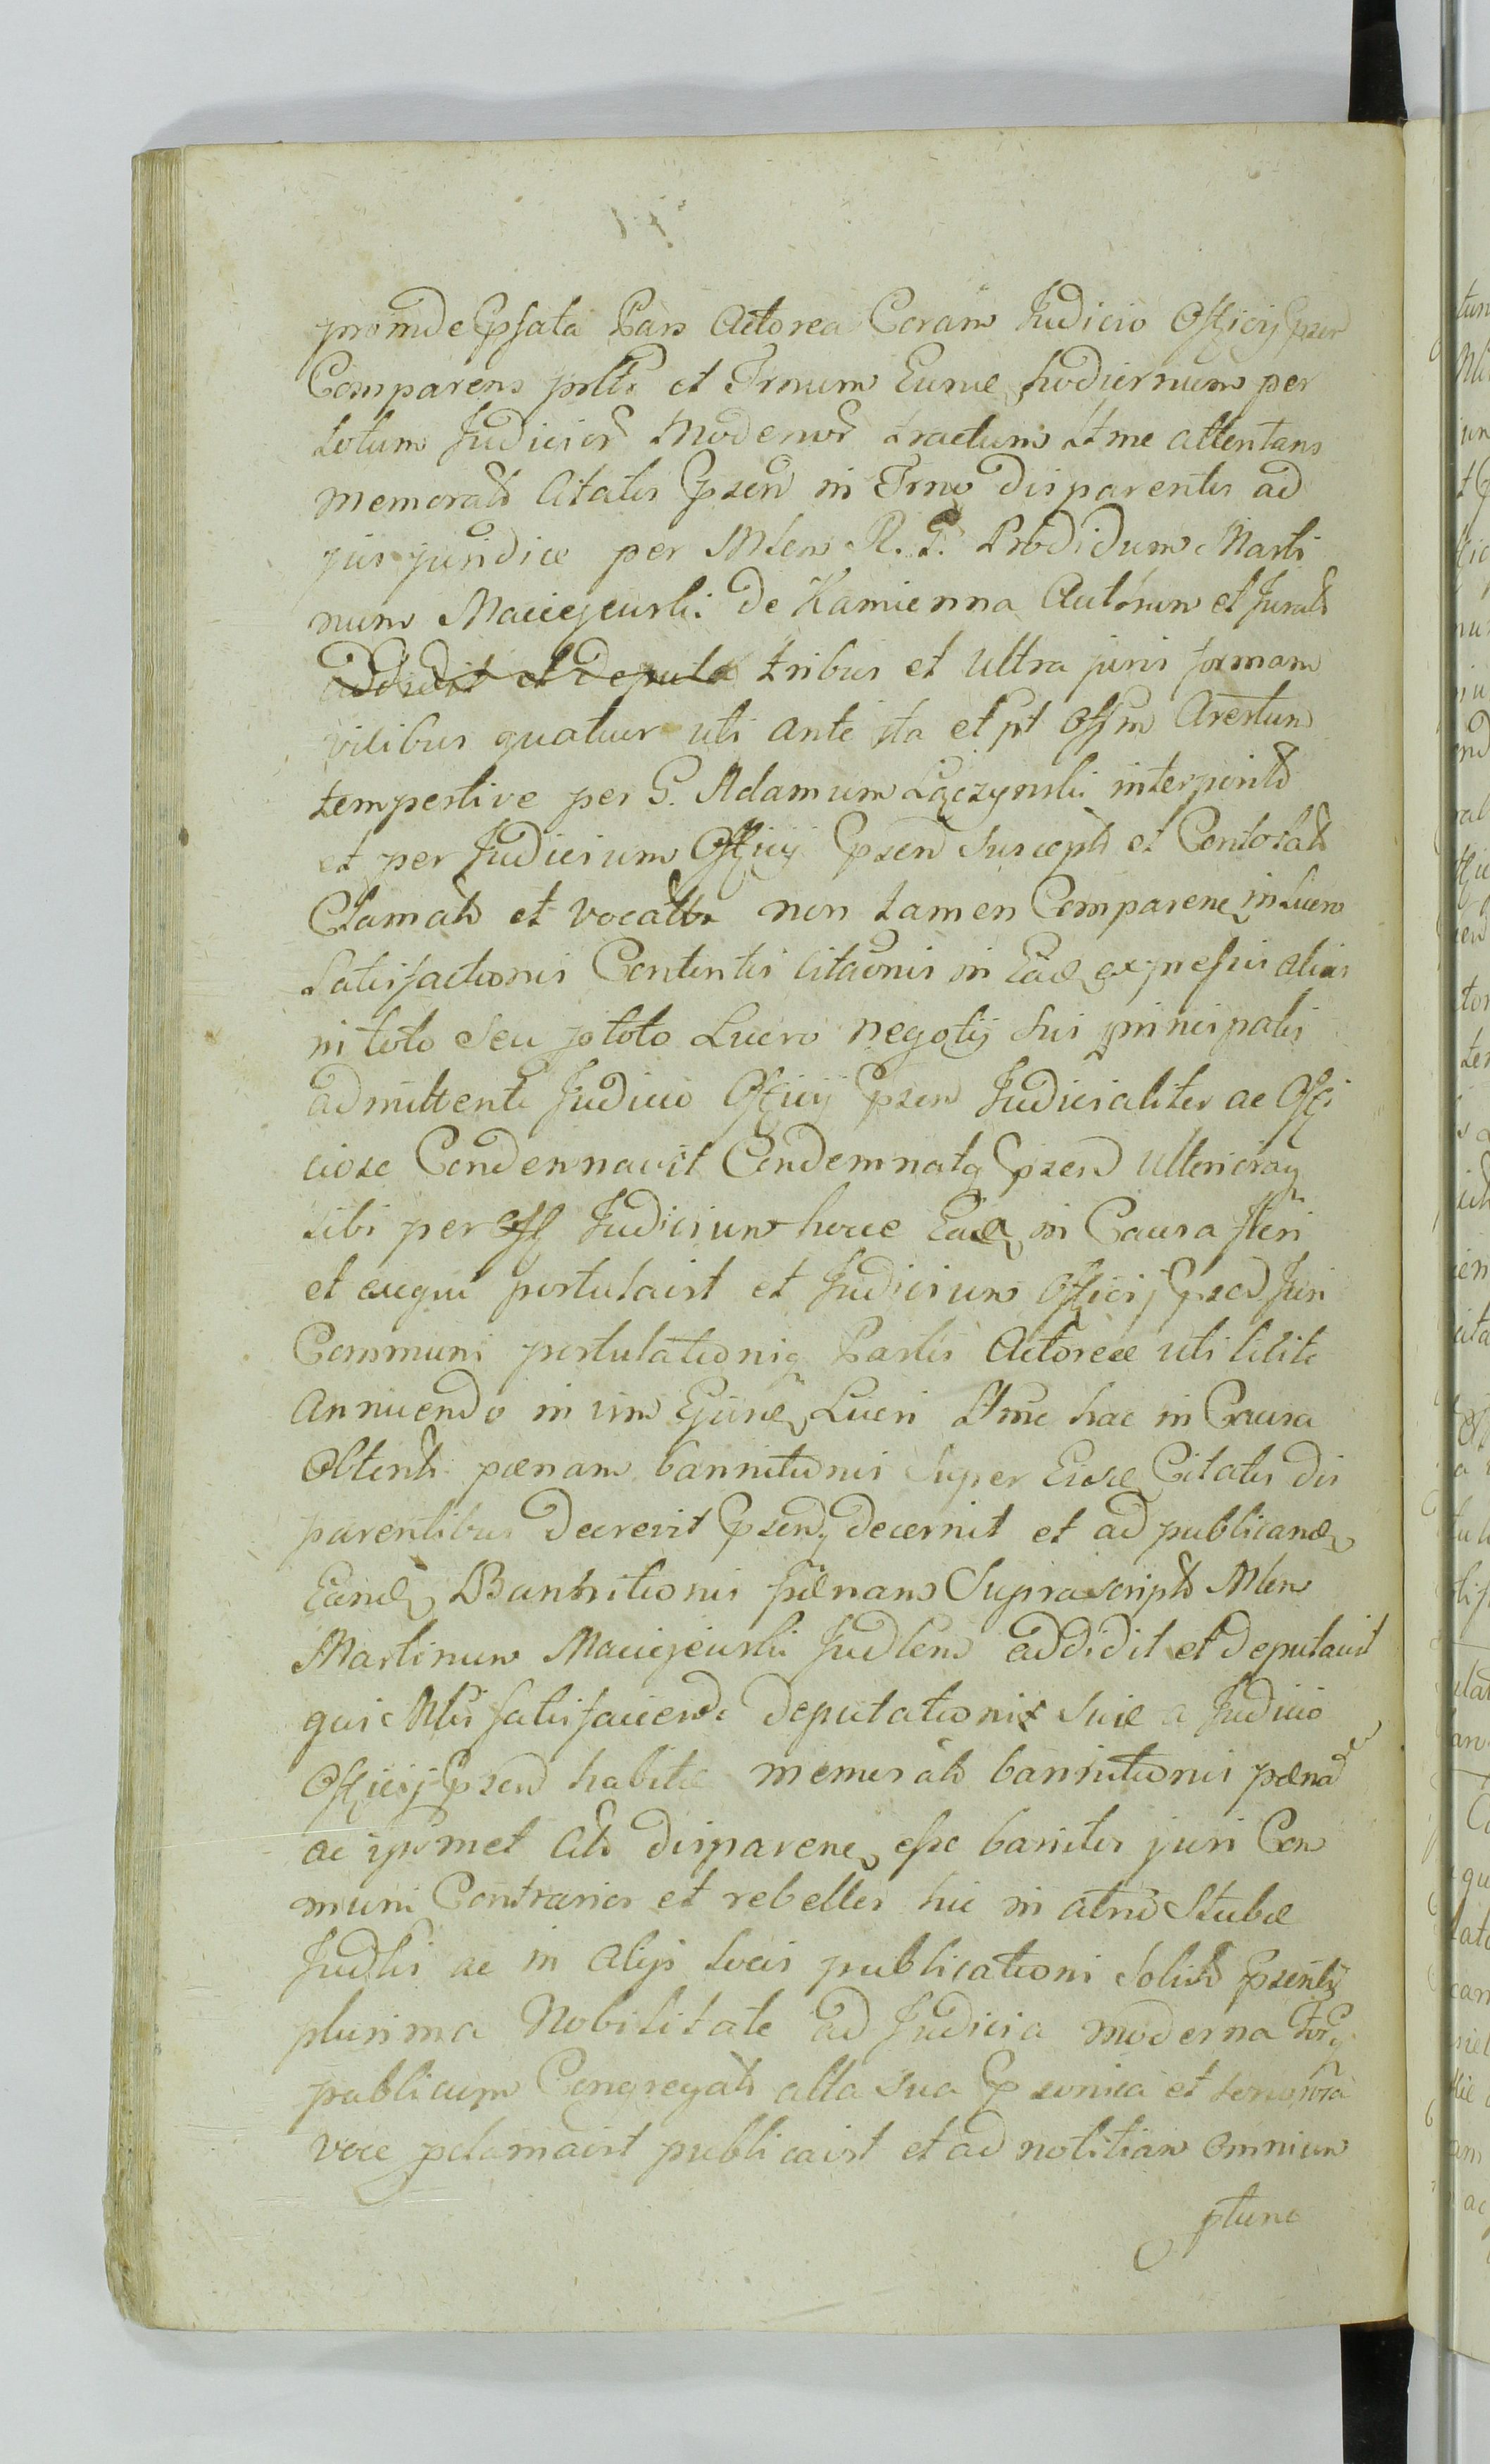 proinde Epsata Pars Actorea Coram Judicio Officij Epsen
Comparens pslr et Trnum Eunde hodiernum per
totum Judicior modernor tractum Ltme attentans
memorats Citatis Epsen in Trno disparentes ad
jus juridice per Mlem R. G. Prodidum Marti
num Maciejewski de Kamienna Authum et Jurats
addidit et deputa tribus et ultra juris formam
vicibus quatuor uti ante sta et pt Offm Arestum
tempestive per G. Adamum Łączynski interposits
et per Judicium Officij Epsen suscepts et Contotats
Clamats et vocatts non tamen Comparene in lucro
Satisfactionis Contentis citaonis in Eade expressis alias
in toto seu ptoto Lucro negotij sui principalis
admittente Judicio Officij Epsen Judicialiter ac Offi
ciose Condemnavit Condemnatq Epsen Ulterioraq
sibi per Off Judicium hocce Eade in Causa fieri
et exequi postulavit et Judicium Officij Epsed Juri
Communi postulationiq Partis Actoreæ uti licite
annuendo in vim Ejusde Lucri Ltme hac in Causa
Obtenti pænam bannitionis super Eisde Citatis dis
parentibus decrevit Epsenq decernit et ad publicand
Eande Bannitionis pænam Suprascripts Mlem
Martinum Maciejewski Judlem addidit et deputavit
qui Mlis satisfaciendo deputationi suæ a Judicio
Officij Epsen habitæ memorats bannitionis pænā
ac ipsomet Cits disparene esse banitos juri Com
muni Contrarios et rebelles hic in atrio Stubæ
Judlis ac in alijs locis publicationi solits Epsentij
plurima Nobilitate ad Judicia moderna forq
publicum Congregats alta sua Epsonica et sonora
voce pclamavit publicavit et ad notitiam omnium
ptunc